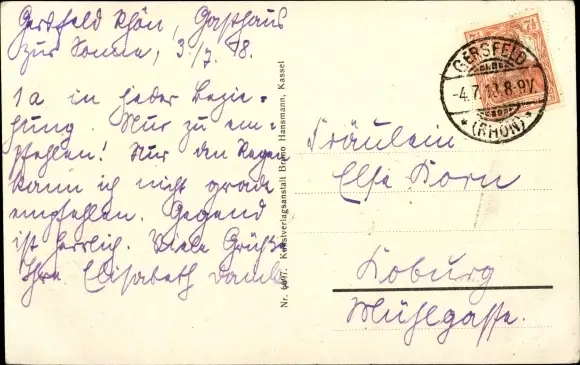 Gersfeld Rhön, Gasthaus
zur Sonne, 3./7. 18.
1a in jeder Bezie-
hung. Nur zu em-
pfehlen! Nur den Regen
kann ich nicht grade
empfehlen. Gegend
ist herrlich. Viele Grüße
Ihre Elisabeth
Nr. 6697. Kunstverlagsanstalt Bruno Hansmann, Kassel
7½ 7½
GERSFELD
-4.7.18.8-9V.
* (RHÖN) *
Fräulein
Else Korn
Koburg
Mühlgasse.